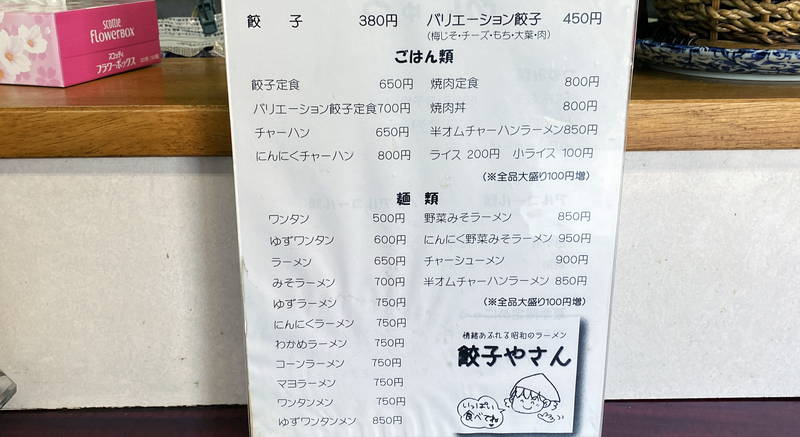 scottie
FLOWERBOX
スコッティ
フラワーボックス
餃 子 380円 バリエーション餃子 450円
(梅じそ・チーズ・もち・大葉・肉)
ごはん類
餃子定食 650円 焼肉定食 800円
バリエーション餃子定食700円 焼肉丼 800円
チャーハン 650円 半オムチャーハンラーメン850円
にんにくチャーハン 800円 ライス 200円 小ライス 100円
(※全品大盛り100円増)
麺 類
ワンタン 500円 野菜みそラーメン 850円
ゆずワンタン 600円 にんにく野菜みそラーメン 950円
ラーメン 650円 チャーシューメン 900円
みそラーメン 700円 半オムチャーハンラーメン 850円
ゆずラーメン 750円 (※全品大盛り100円増)
にんにくラーメン 750円
わかめラーメン 750円
コーンラーメン 750円
マヨラーメン 750円
ワンタンメン 750円
ゆずワンタンメン 850円
情緒あふれる昭和のラーメン
餃子やさん
いっぱい
食べてね